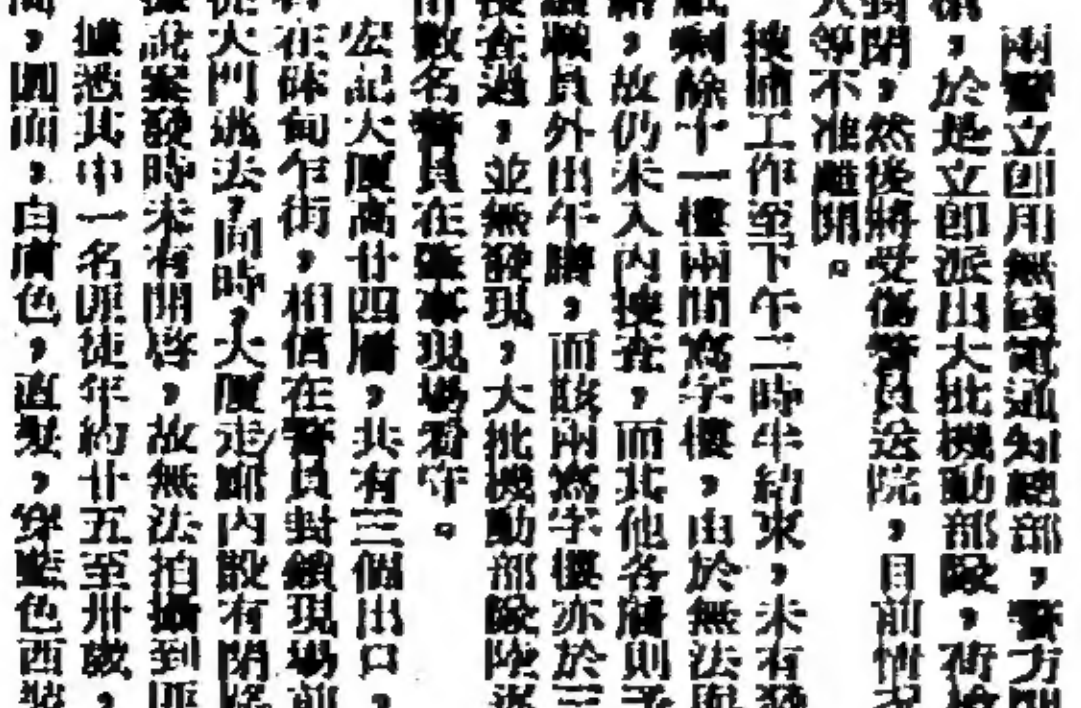 兩警立即用無綫電通知總部，警方
，於是立即派出大批機動部隊，荷槍
封閉，然後將受傷警員送院，目前情況
人等不准離開。
搜捕工作至下午二時半結束，未有發
剩餘十一樓兩間寫字樓，由於無法與
，故仍未入內搜查，而其他各層則予
職員外出午膳，而該兩寫字樓亦於三
搜查過，並無發現，大批機動部隊陸
數名警員在肇事現場看守。
宏記大厦高廿四層，共有三個出口，
在砵甸乍街，相信在警員封鎖現場前
從大門逃去，同時，大厦走廊內設有閉路
據說案發時未有開啓，故無法拍攝到匪
據悉其中一名匪徒年約廿五至卅歲，
，圓面，白膚色，直髮，穿藍色西裝